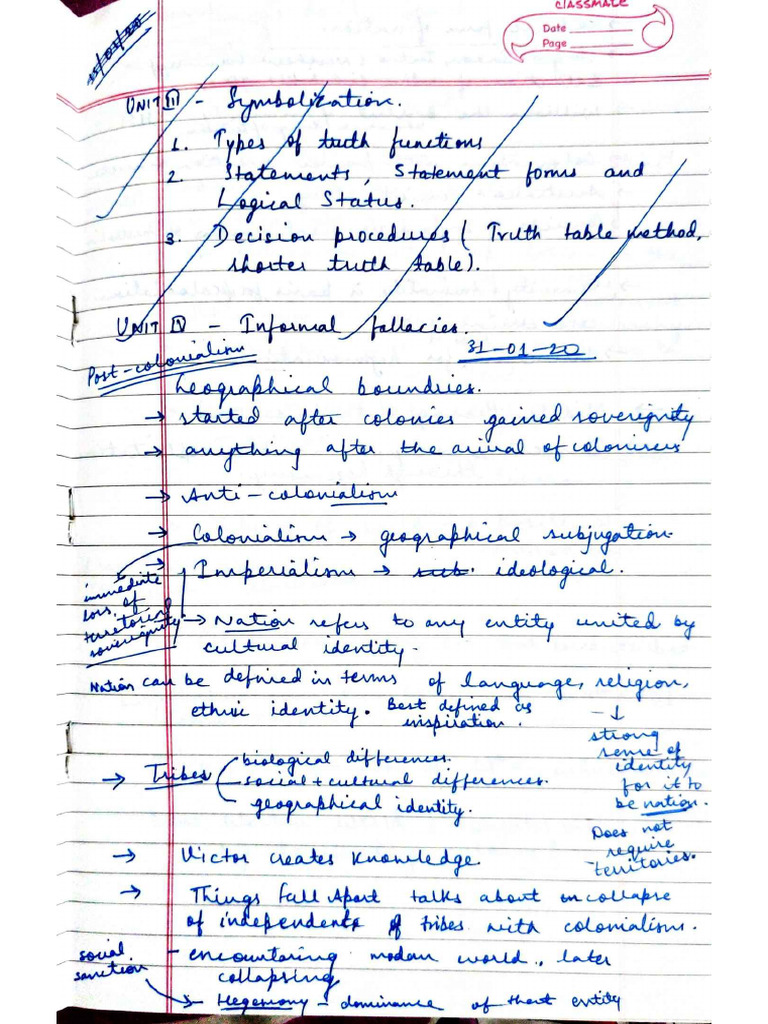 CLASSMATE
Date
Page
UNIT III - Symbolization.
1. Types of truth functions
2. Statements, Statement forms and
Logical Status.
3. Decision procedures ( Truth table method,
shorter truth table).
UNIT IV - Informal fallacies.
Post-colonialism
31-01-20
Geographical boundries.
→ started after colonies gained soverignity
→ anything after the arival of colonisers
→ Anti-colonialism
→ Colonialism → geographical subjugation.
→ Imperialism → ideological.
immediate
loss of
territorial
soverignity.
→ Nation refers to any entity united by
cultural identity.
Nation can be defined in terms of language, religion,
ethnic identity. Best defined as
inspiration.
→ strong
sense of
identity
for it to
be nation.
Does not
require
territories.
→ Tribes
biological differences.
social + cultural differences.
geographical identity.
→ Victor creates knowledge.
→ Things Fall Apart talks about collapse
of independent tribes with colonialism.
social
sanction
- encountering modern world, later
collapsing
→ Hegemony - dominance of that entity